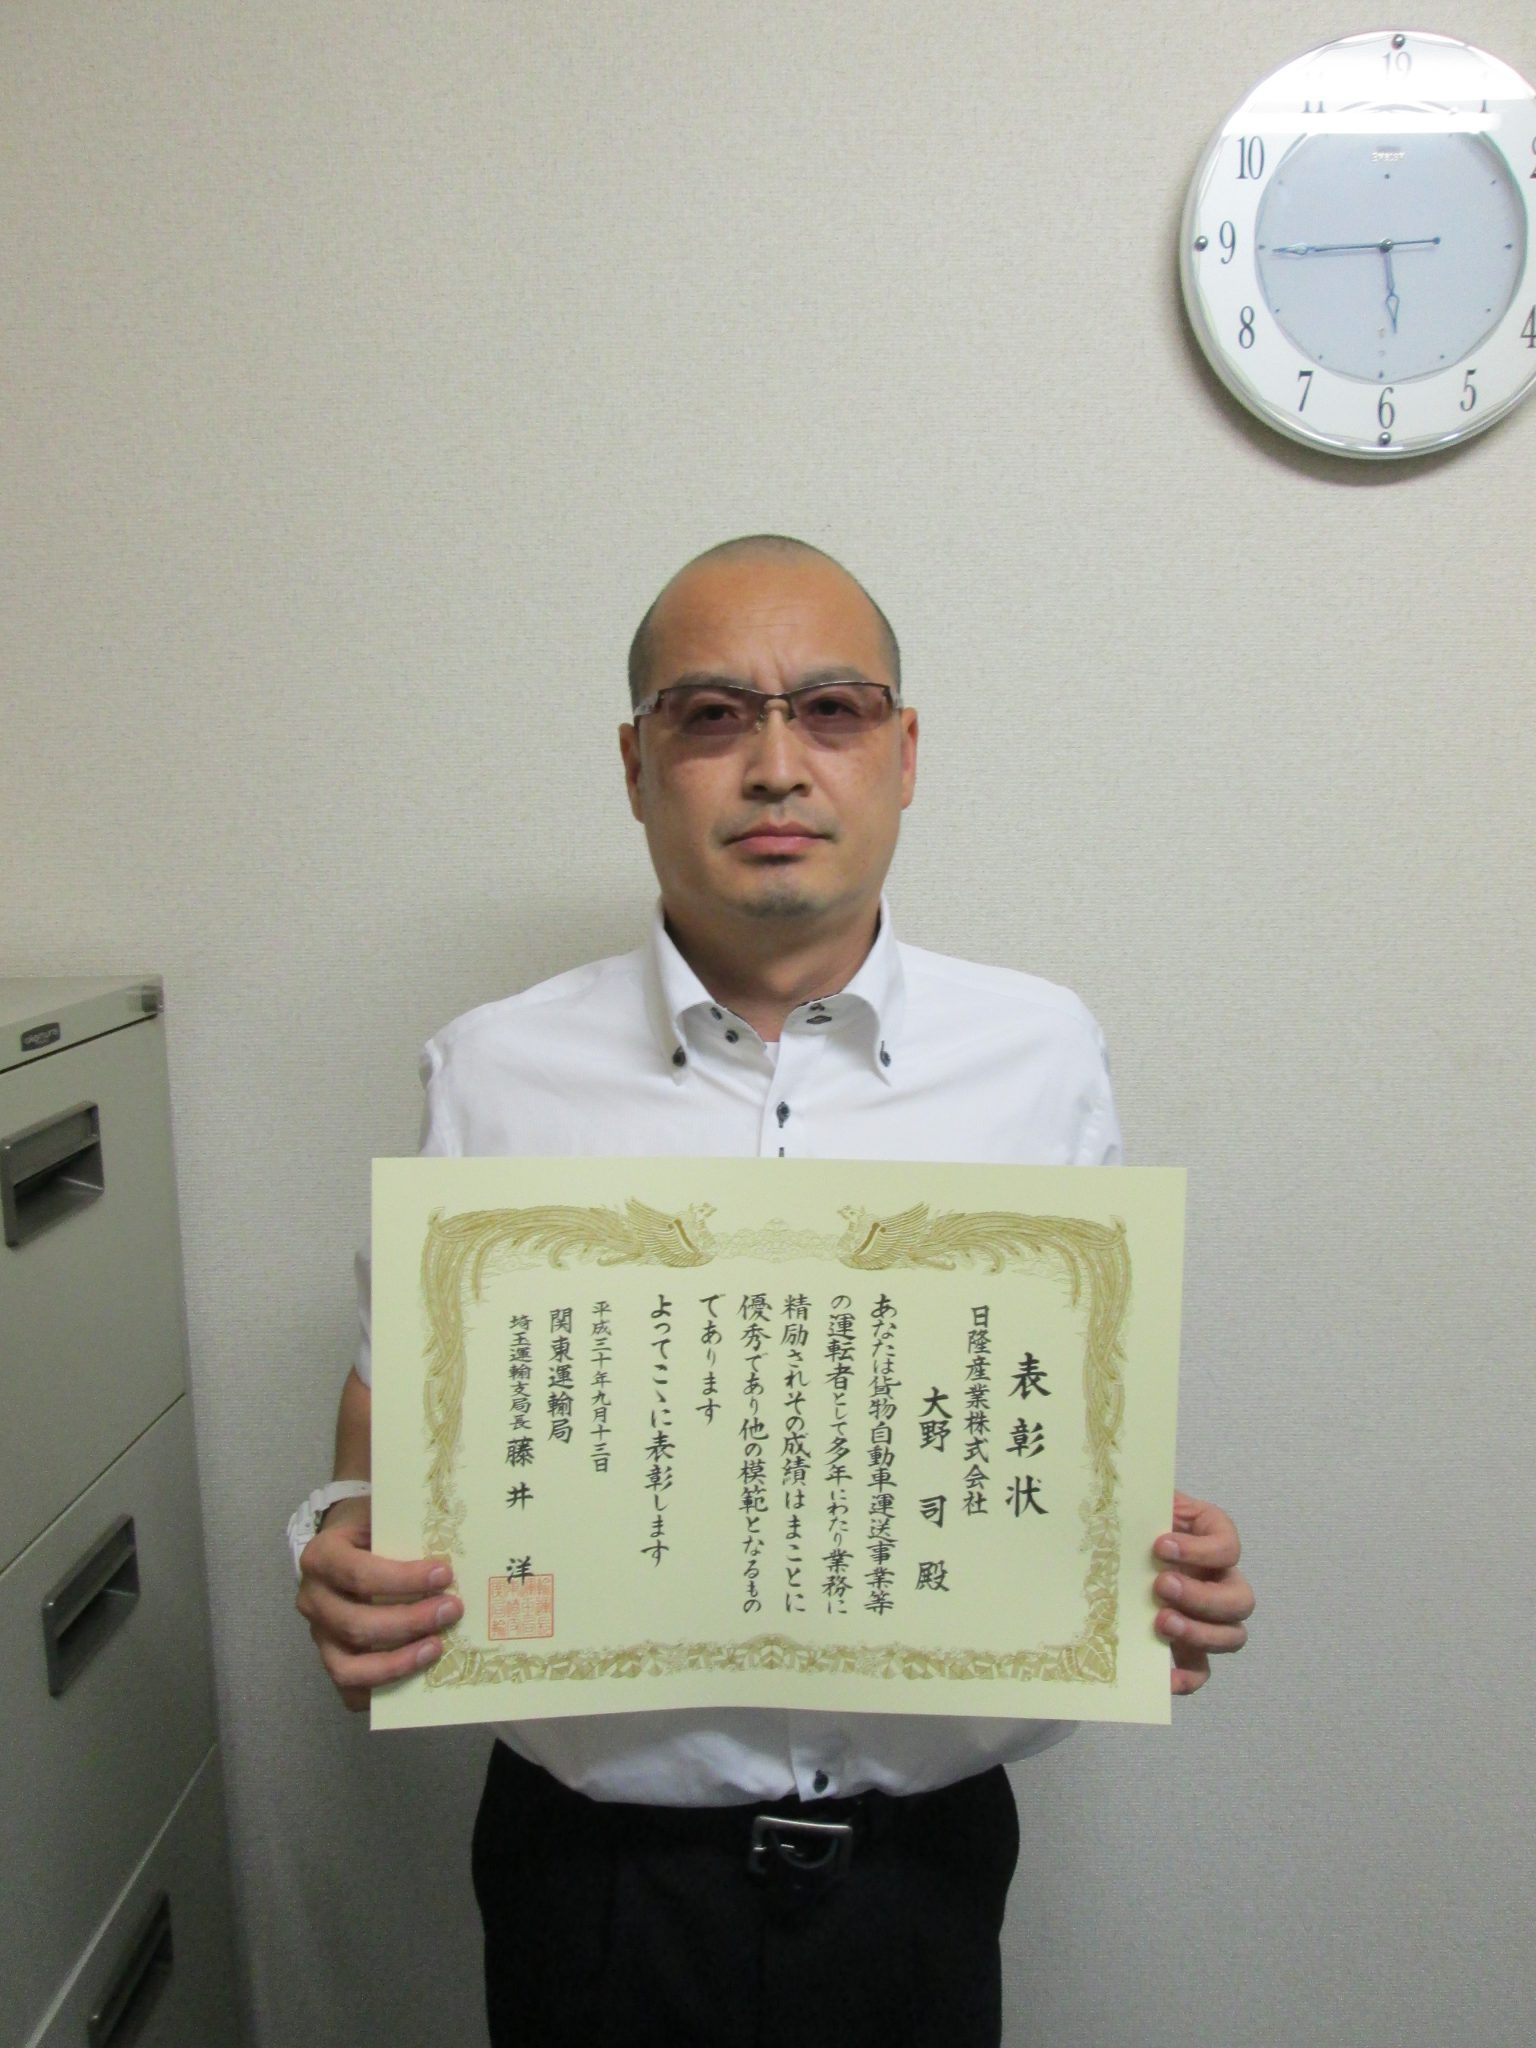 表彰状
日隆産業株式会社
大野 司 殿
あなたは貨物自動車運送事業等
の運転者として多年にわたり業務に
精励されその成績はまことに
優秀であり他の模範となるもの
であります
よってこゝに表彰します
平成三十年九月十三日
関東運輸局
埼玉運輸支局長 藤井 洋
12
11
1
10
9
8
7
6
5
4